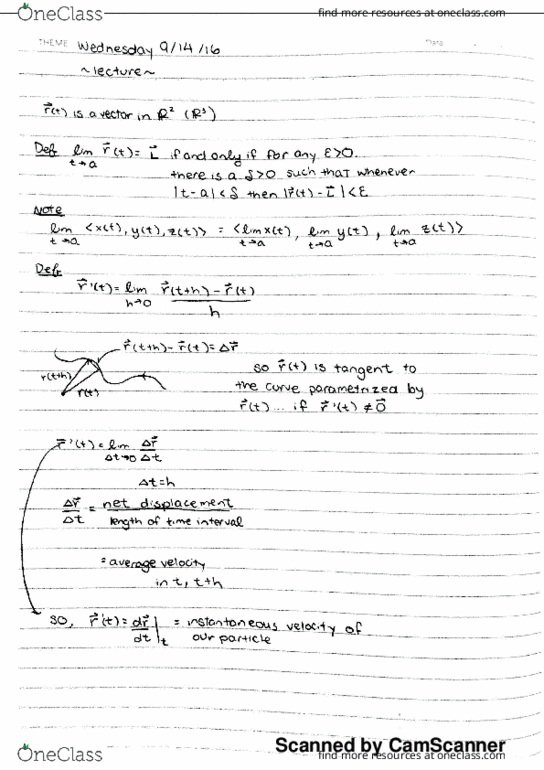 OneClass find more resources at oneclass.com
THEME Wednesday 9/14/16 Date
~lecture~
r⃗(t) is a vector in ℝ² (ℝ³)
Def lim t→a r⃗(t) = L⃗ if and only if for any ε>0.
there is a δ>0 such that whenever
|t-a|<δ then |r⃗(t)-L⃗|<ε
Note
lim t→a <x(t), y(t), z(t)> = <lim t→a x(t), lim t→a y(t), lim t→a z(t)>
Def
r⃗'(t) = lim h→0 r⃗(t+h)-r⃗(t) / h
r⃗(t+h)-r⃗(t)=Δr⃗
r(t+h)
r(t)
so r⃗(t) is tangent to
the curve parametrized by
r⃗(t)... if r⃗'(t) ≠ 0⃗
r⃗'(t) = lim Δt→0 Δr⃗/Δt
Δt=h
Δr⃗/Δt = net displacement / length of time interval
= average velocity
in t, t+h
so, r⃗(t) = dr⃗/dt |t = instantaneous velocity of
our particle
Scanned by CamScanner
OneClass find more resources at oneclass.com